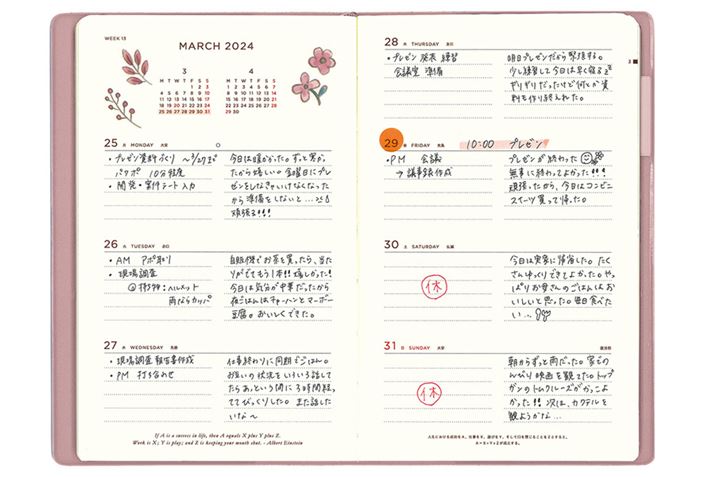 WEEK 13
MARCH 2024
3
M T W T F S S
1 2 3
4 5 6 7 8 9 10
11 12 13 14 15 16 17
18 19 20 21 22 23 24
25 26 27 28 29 30 31
4
M T W T F S S
1 2 3 4 5 6 7
8 9 10 11 12 13 14
15 16 17 18 19 20 21
22 23 24 25 26 27 28
29 30
25 月 MONDAY 大安
・プレゼン資料づくり 〜3/27まで
パワポ 10分程度
今日は暖かかった。ずっと寒か
ったから嬉しい。金曜日にプレ
ゼンをしなきゃいけなくなった
から準備をしないと…
頑張る!!!
26 火 TUESDAY 赤口
・AM アポ取り
・現場調査
@持ち物:ヘルメット
雨ならカッパ
自販機でお茶を買ったら、当た
りがでてもう1本!!嬉しかった!
今日は気分が中華だったから
夜ごはんはチャーハンとマーボー
豆腐。おいしくできた。
27 水 WEDNESDAY 先勝
・現場調査 報告書作成
・PM 打ち合わせ
仕事終わりに同期でごはん。
お互いの状況をいろいろ話して
たらあっという間に3時間経っ
ててびっくりした。また話した
いな〜
If A is a success in life, then A equals X plus Y plus Z.
Work is X; Y is play; and Z is keeping your mouth shut. - Albert Einstein
28 木 THURSDAY 友引
・プレゼン 発表 練習
会議室 準備
明日プレゼンだから緊張する。
少し練習して今日は早く寝る
ギリギリだったけど何とか資
料を作り終えれた。
3
29 金 FRIDAY 先負 10:00 プレゼン
・PM 会議
→議事録作成
プレゼンが終わった
無事に終わってよかった!!!
頑張ったから、今日はコンビニ
スイーツ買って帰った。
30 土 SATURDAY 仏滅
休
今日は実家に帰省した。たく
さんゆっくりできてよかった。やっ
ぱりお母さんのごはんはお
いしいと思った。毎日食べた
い…
31 日 SUNDAY 大安
休
朝からずっと雨だった。家での
んびり映画を観てた。トップ
ガンのトムクルーズがかっこよ
かった!!次は、カクテルを
観ようかな…
人生における成功をA、仕事をX、遊びをY、そして口を閉じることをZとすると、
A=X+Y+Zが成立する。